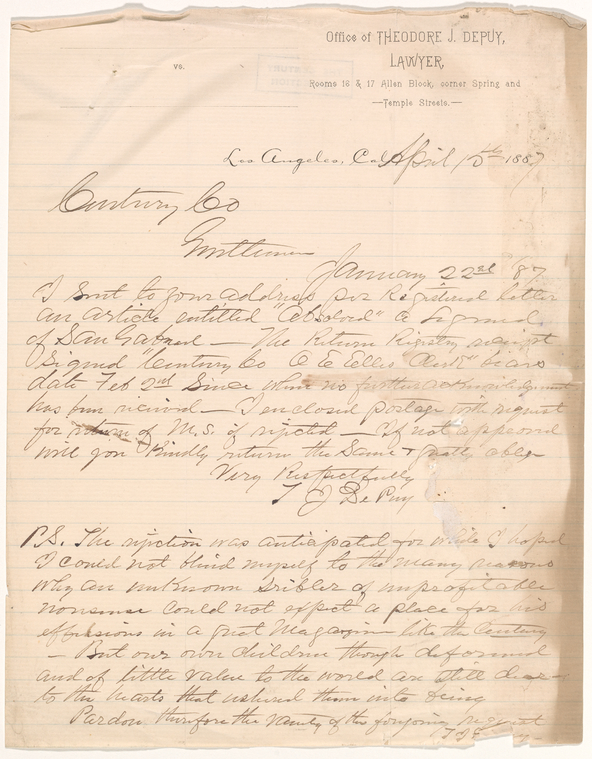 Office of THEODORE J. DEPUY,
LAWYER,
vs.
Rooms 16 & 17 Allen Block, corner Spring and
—Temple Streets.—
Los Angeles, Cal. April 15th 1887
Century Co
Gentlemen
January 22nd /87
I sent to your address per Registered letter
an article entitled "Absolved" a Legend
of San Gabriel — The Return Registry receipt
signed "Century Co C E Ellis Clerk" bears
date Feb 2nd Since when no further acknowledgment
has been received — I enclosed postage with request
for return of M.S. if rejected — If not approved
will you kindly return the same & greatly oblige
Very Respectfully
T J DePuy
P.S. The rejection was anticipated for while I hoped
I could not blind myself to the many reasons
why an unknown scribler of unprofitable
nonsense could not expect a place for his
effusions in a great Magazine like the Century
— But our own children though deformed
and of little value to the world are still dear—
to the hearts that ushered them into being
Pardon therefore the vanity of this foregoing request